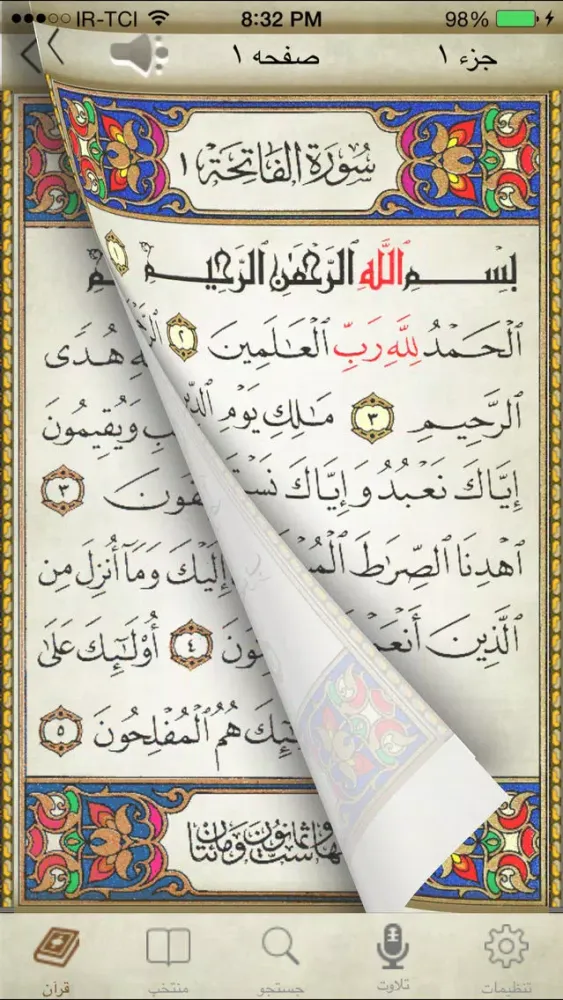 IR-TCI 8:32 PM 98%
جزء ١ صفحه ١
سُورَةُ الفَاتِحَةِ ١
بِسْمِ ٱللَّهِ ٱلرَّحْمَٰنِ ٱلرَّحِيمِ ١
ٱلْحَمْدُ لِلَّهِ رَبِّ ٱلْعَٰلَمِينَ ٢ هُدًى
ٱلرَّحِيمِ ٣ مَٰلِكِ يَوْمِ وَيُقِيمُونَ
إِيَّاكَ نَعْبُدُ وَإِيَّاكَ ٣
ٱهْدِنَا ٱلصِّرَٰطَ إِلَيْكَ وَمَآ أُنزِلَ مِن
ٱلَّذِينَ ٤ أُو۟لَٰٓئِكَ عَلَىٰ
هُمُ ٱلْمُفْلِحُونَ ٥
ست وثمانون ومائتان
تنظیمات تلاوت جستجو منتخب قرآن